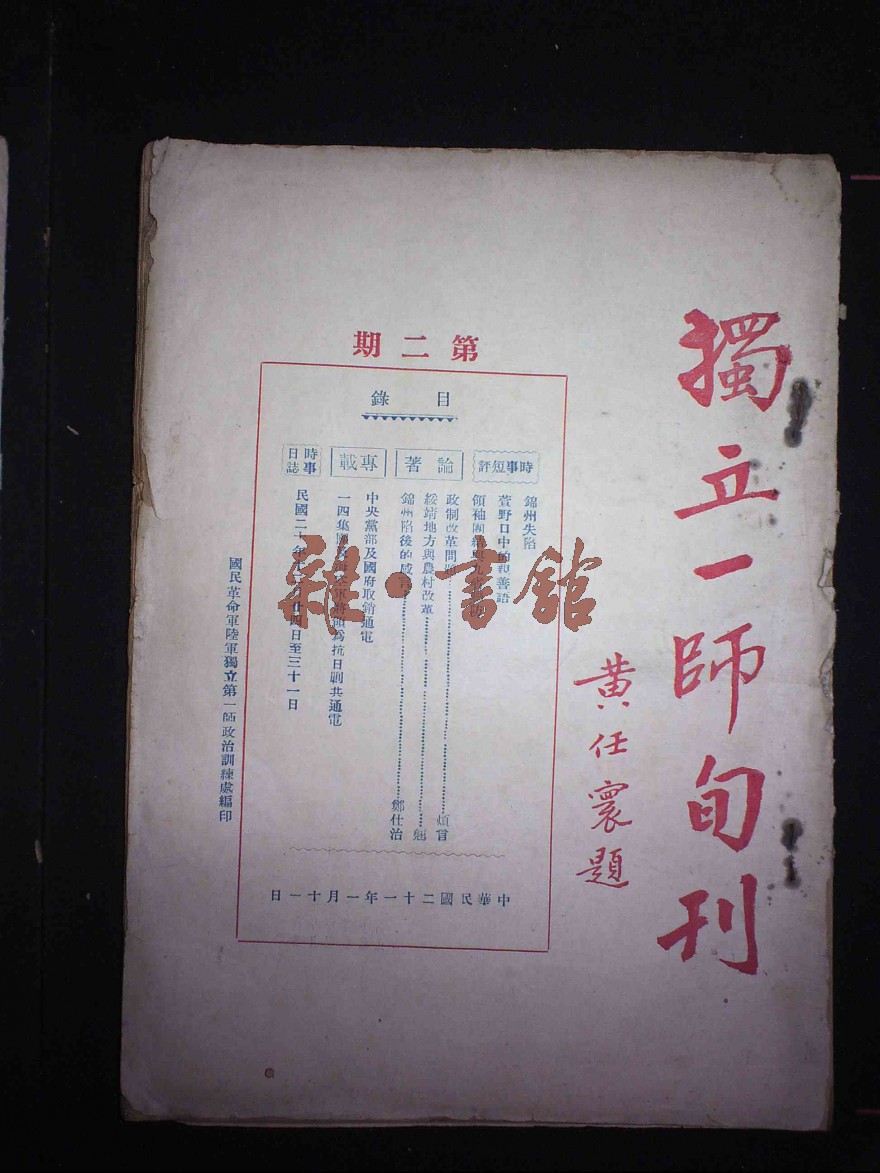 獨立一師旬刊
黄任寰題
第二期
目錄
時事短評
錦州失陷
萱野口中的親善語
領袖團結與
論著
政制改革問題
煩言
綏靖地方與農村改革
錦州陷後的感言
鄭仕治
專載
中央黨部及國府取銷通電
一四集團 將領爲抗日剿共通電
時事日誌
民國二十年十二月廿四日至三十一日
中華民國二十一年一月十一日
國民革命軍陸軍獨立第一師政治訓練處編印
雜·書館